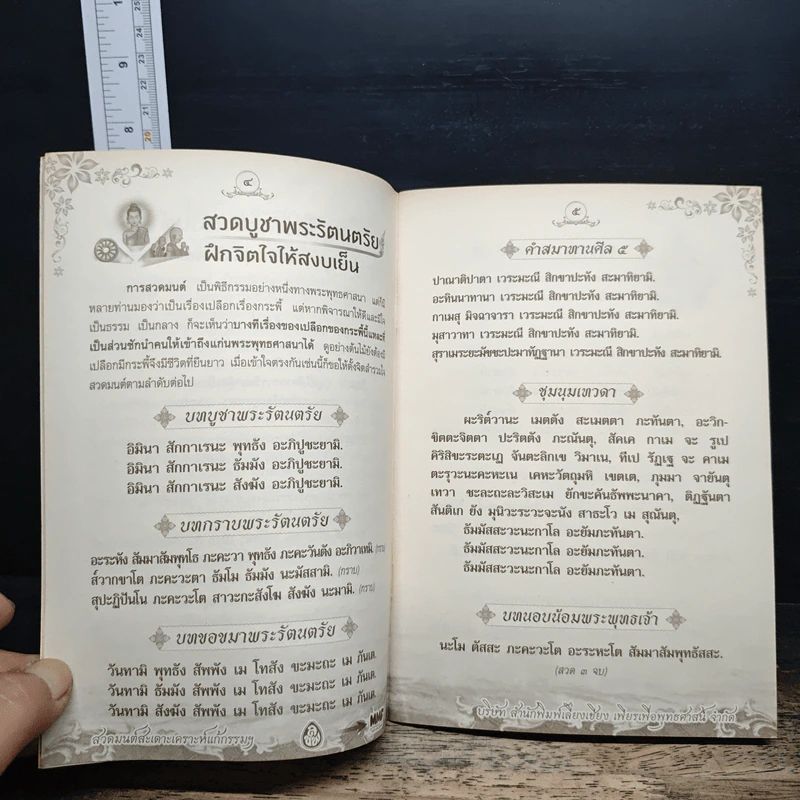 ๔
สวดบูชาพระรัตนตรัย
ฝึกจิตใจให้สงบเย็น
การสวดมนต์ เป็นพิธีกรรมอย่างหนึ่งทางพระพุทธศาสนา แต่ก็มี
หลายท่านมองว่าเป็นเรื่องเปลือกเรื่องกระพี้ แต่หากพิจารณาให้ดีและมีใจ
เป็นธรรม เป็นกลาง ก็จะเห็นว่าบางทีเรื่องของเปลือกของกระพี้นี้แหละที่
เป็นส่วนชักนำคนให้เข้าถึงแก่นพระพุทธศาสนาได้ ดูอย่างต้นไม้ยังต้องมี
เปลือกมีกระพี้จึงมีชีวิตที่ยืนยาว เมื่อเข้าใจตรงกันเช่นนี้ก็ขอให้ตั้งจิตสำรวมใจ
สวดมนต์ตามลำดับต่อไป
บทบูชาพระรัตนตรัย
อิมินา สักกาเรนะ พุทธัง อะภิปูชะยามิ.
อิมินา สักกาเรนะ ธัมมัง อะภิปูชะยามิ.
อิมินา สักกาเรนะ สังฆัง อะภิปูชะยามิ.
บทกราบพระรัตนตรัย
อะระหัง สัมมาสัมพุทโธ ภะคะวา พุทธัง ภะคะวันตัง อะภิวาเทมิ. (กราบ)
ส๎วากขาโต ภะคะวะตา ธัมโม ธัมมัง นะมัสสามิ. (กราบ)
สุปะฏิปันโน ภะคะวะโต สาวะกะสังโฆ สังฆัง นะมามิ. (กราบ)
บทขอขมาพระรัตนตรัย
วันทามิ พุทธัง สัพพัง เม โทสัง ขะมะถะ เม ภันเต.
วันทามิ ธัมมัง สัพพัง เม โทสัง ขะมะถะ เม ภันเต.
วันทามิ สังฆัง สัพพัง เม โทสัง ขะมะถะ เม ภันเต.
สวดมนต์สะเดาะเคราะห์แก้กรรมฯ
๕
คำสมาทานศีล ๕
ปาณาติปาตา เวระมะณี สิกขาปะทัง สะมาทิยามิ.
อะทินนาทานา เวระมะณี สิกขาปะทัง สะมาทิยามิ.
กาเมสุ มิจฉาจารา เวระมะณี สิกขาปะทัง สะมาทิยามิ.
มุสาวาทา เวระมะณี สิกขาปะทัง สะมาทิยามิ.
สุราเมระยะมัชชะปะมาทัฏฐานา เวระมะณี สิกขาปะทัง สะมาทิยามิ.
ชุมนุมเทวดา
ผะริต๎วานะ เมตตัง สะเมตตา ภะทันตา, อะวิก-
ขิตตะจิตตา ปะริตตัง ภะณันตุ, สัคเค กาเม จะ รูเป
คิริสิขะระตะเฏ จันตะลิกเข วิมาเน, ทีเป รัฏเฐ จะ คาเม
ตะรุวะนะคะหะเน เคหะวัตถุมหิ เขตเต, ภุมมา จายันตุ
เทวา ชะละถะละวิสะเม ยักขะคันธัพพะนาคา, ติฏฐันตา
สันติเก ยัง มุนิวะระวะจะนัง สาธะโว เม สุณันตุ,
ธัมมัสสะวะนะกาโล อะยัมภะทันตา.
ธัมมัสสะวะนะกาโล อะยัมภะทันตา.
ธัมมัสสะวะนะกาโล อะยัมภะทันตา.
บทนอบน้อมพระพุทธเจ้า
นะโม ตัสสะ ภะคะวะโต อะระหะโต สัมมาสัมพุทธัสสะ.
(สวด ๓ จบ)
บริษัท สำนักพิมพ์เลี่ยงเชียง เพียรเพื่อพุทธศาสน์ จำกัด